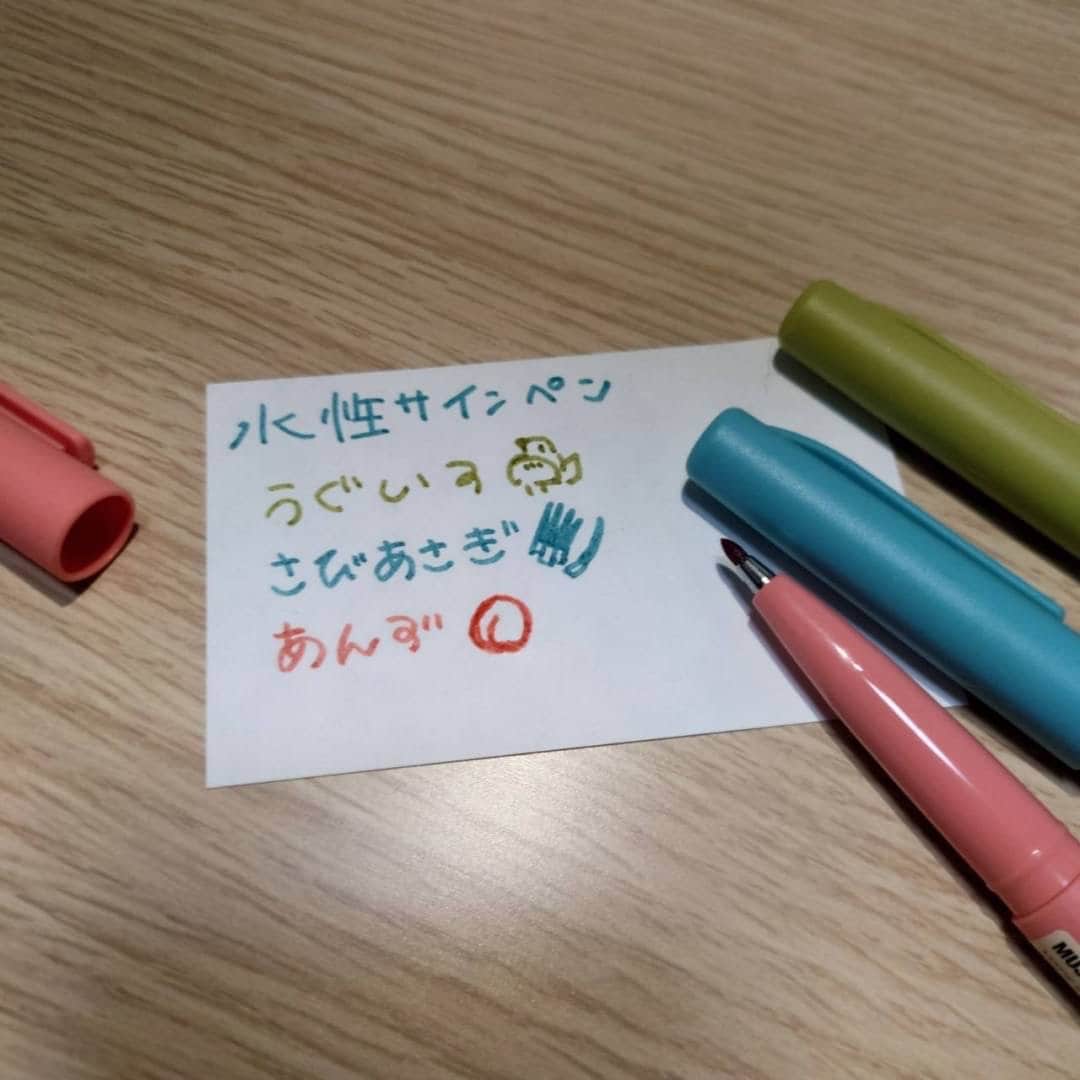 水性サインペン
うぐいす
さびあさぎ
あんず